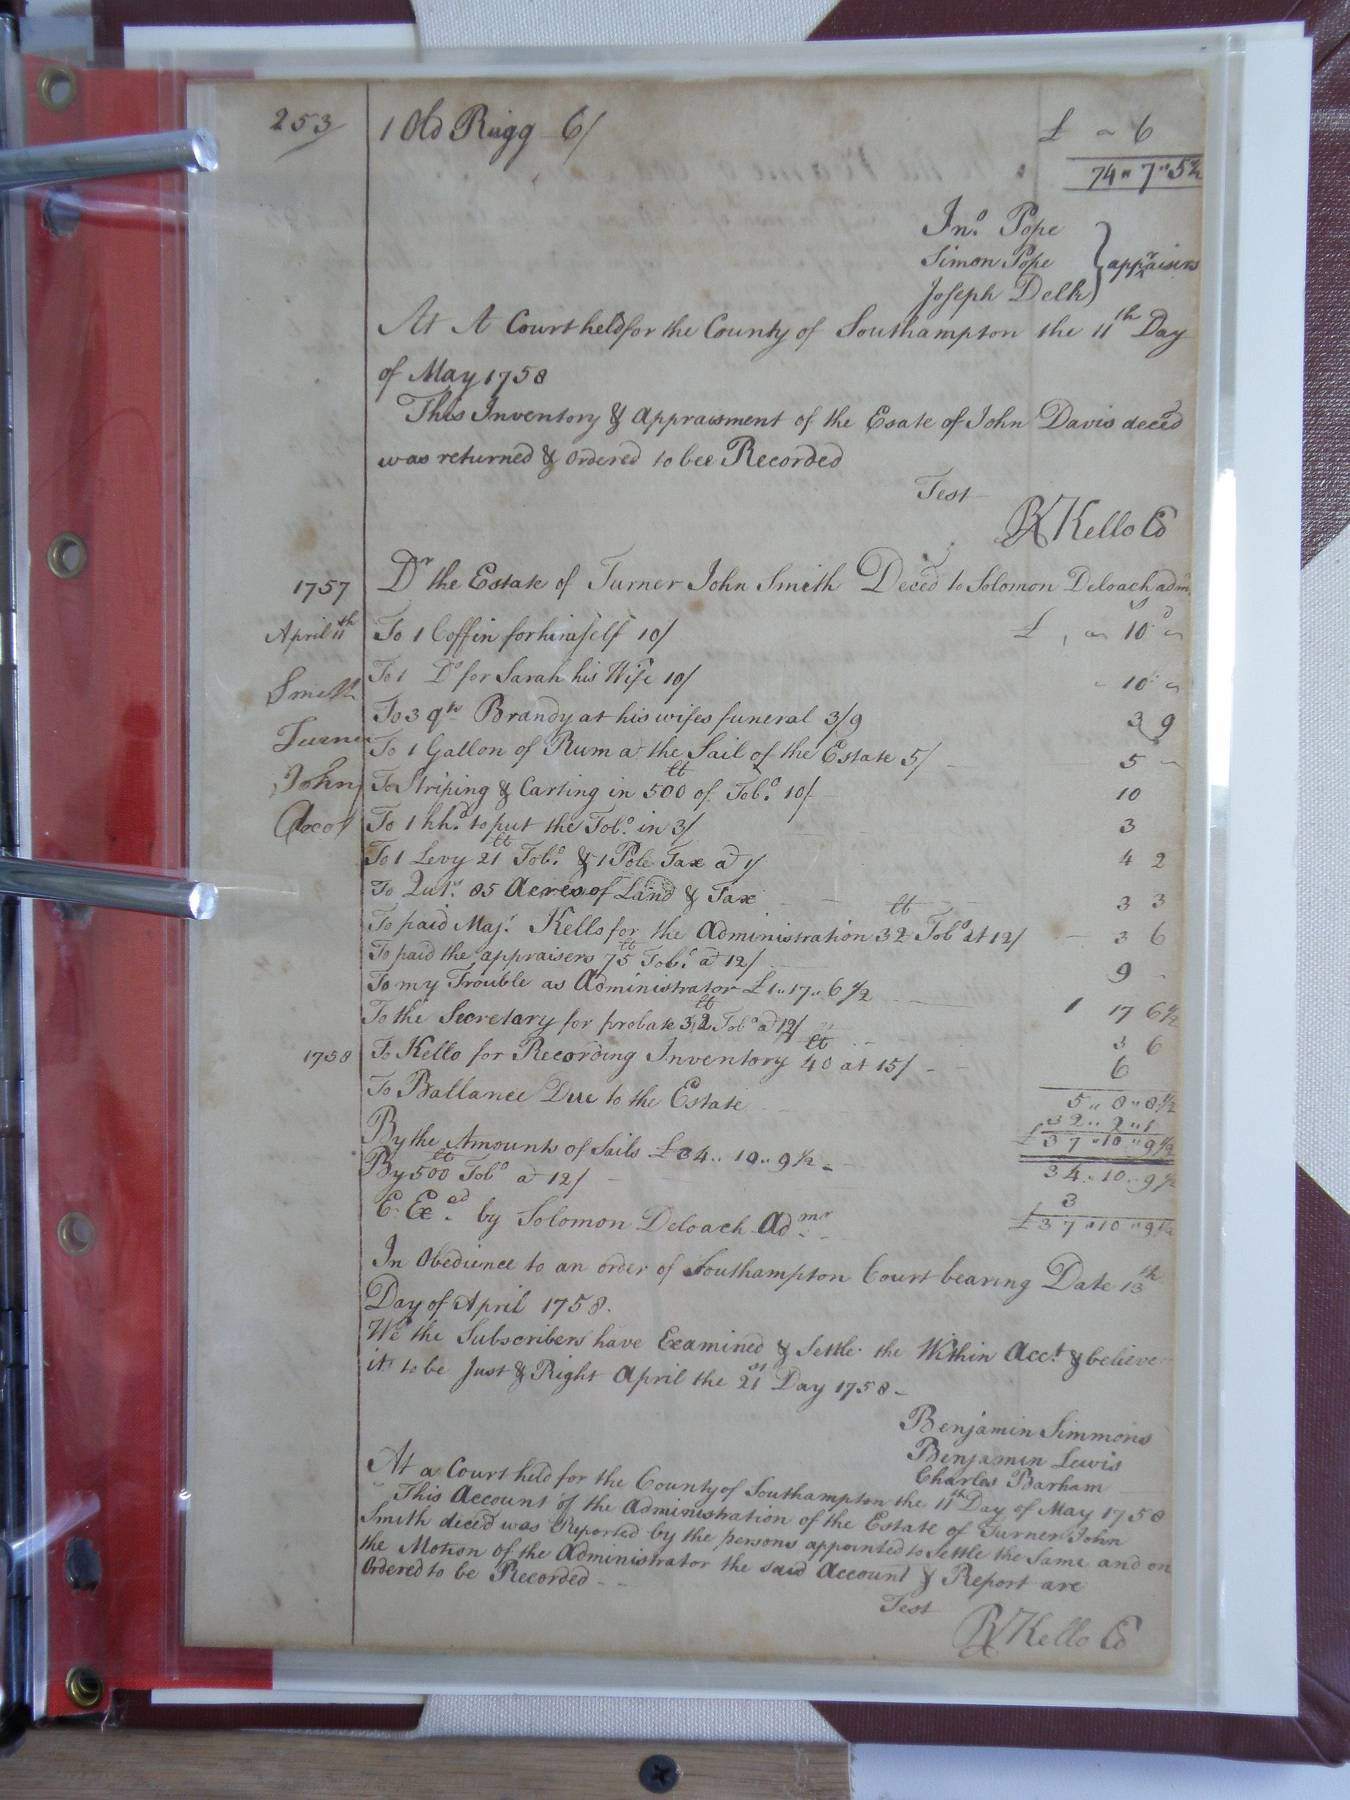 253 1 Old Rugg 6/ £ " 6
74 " 7 " 5½
Jno. Pope
Simon Pope } appraisers
Joseph Delk
At A Court held for the County of Southampton the 11th Day
of May 1758
This Inventory & Appraisment of the Esate of John Davis deced
was returned & ordered to bee Recorded
Test
R Kello C
1757 Dr the Estate of Turner John Smith Deced to Solomon Deloach adm
s d
April 11th To 1 Coffin for himself 10/ £ " 10 "
Smith To 1 Do for Sarah his Wife 10/ " 10 "
Turner To 3 qts Brandy at his wifes funeral 3/9 3 9
To 1 Gallon of Rum at the Sail of the Estate 5/ 5 "
John To Striping & Carting in 500 lt of Tobo. 10/ 10
Acct To 1 hhd. to put the Tobo. in 3/ 3
To 1 Levy 21 lt Tobo. & 1 Pole Tax a 1/ 4 2
To Quts. 85 Acres of Land & Tax 3 3
To paid Majr. Kello for the Administration 32 lt Tobo at 12/ 3 6
To paid the appraisers 75 lt Tobo. a 12/ 9
To my Trouble as Administrator £1 " 17 " 6½ 1 17 6½
To the Secretary for probate 32 lt Tobo a 12/ 3 6
1758 To Kello for Recording Inventory 40 lt at 15/ 6
5 " 8 " 8½
To Ballance Due to the Estate 32 " 2 " 1
£37 " 10 " 9½
By the Amounts of Sails £34 " 10 " 9½ 34 " 10 " 9½
By 500 lt Tobo a 12/ 3
E. Exed. by Solomon Deloach Admr £37 " 10 " 9½
In Obedience to an order of Southampton Court bearing Date 13th
Day of April 1758.
We the Subscribers have Examined & Settle the Within Acct & believe
it to be Just & Right April the 21st Day 1758
Benjamin Simmons
Benjamin Lewis
Charles Barham
At a Court held for the County of Southampton the 11th Day of May 1758
This Account of the Administration of the Estate of Turner John
Smith deced was Reported by the persons appointed to settle the Same and on
the Motion of the Administrator the said Account & Report are
Ordered to be Recorded
Test
R Kello C